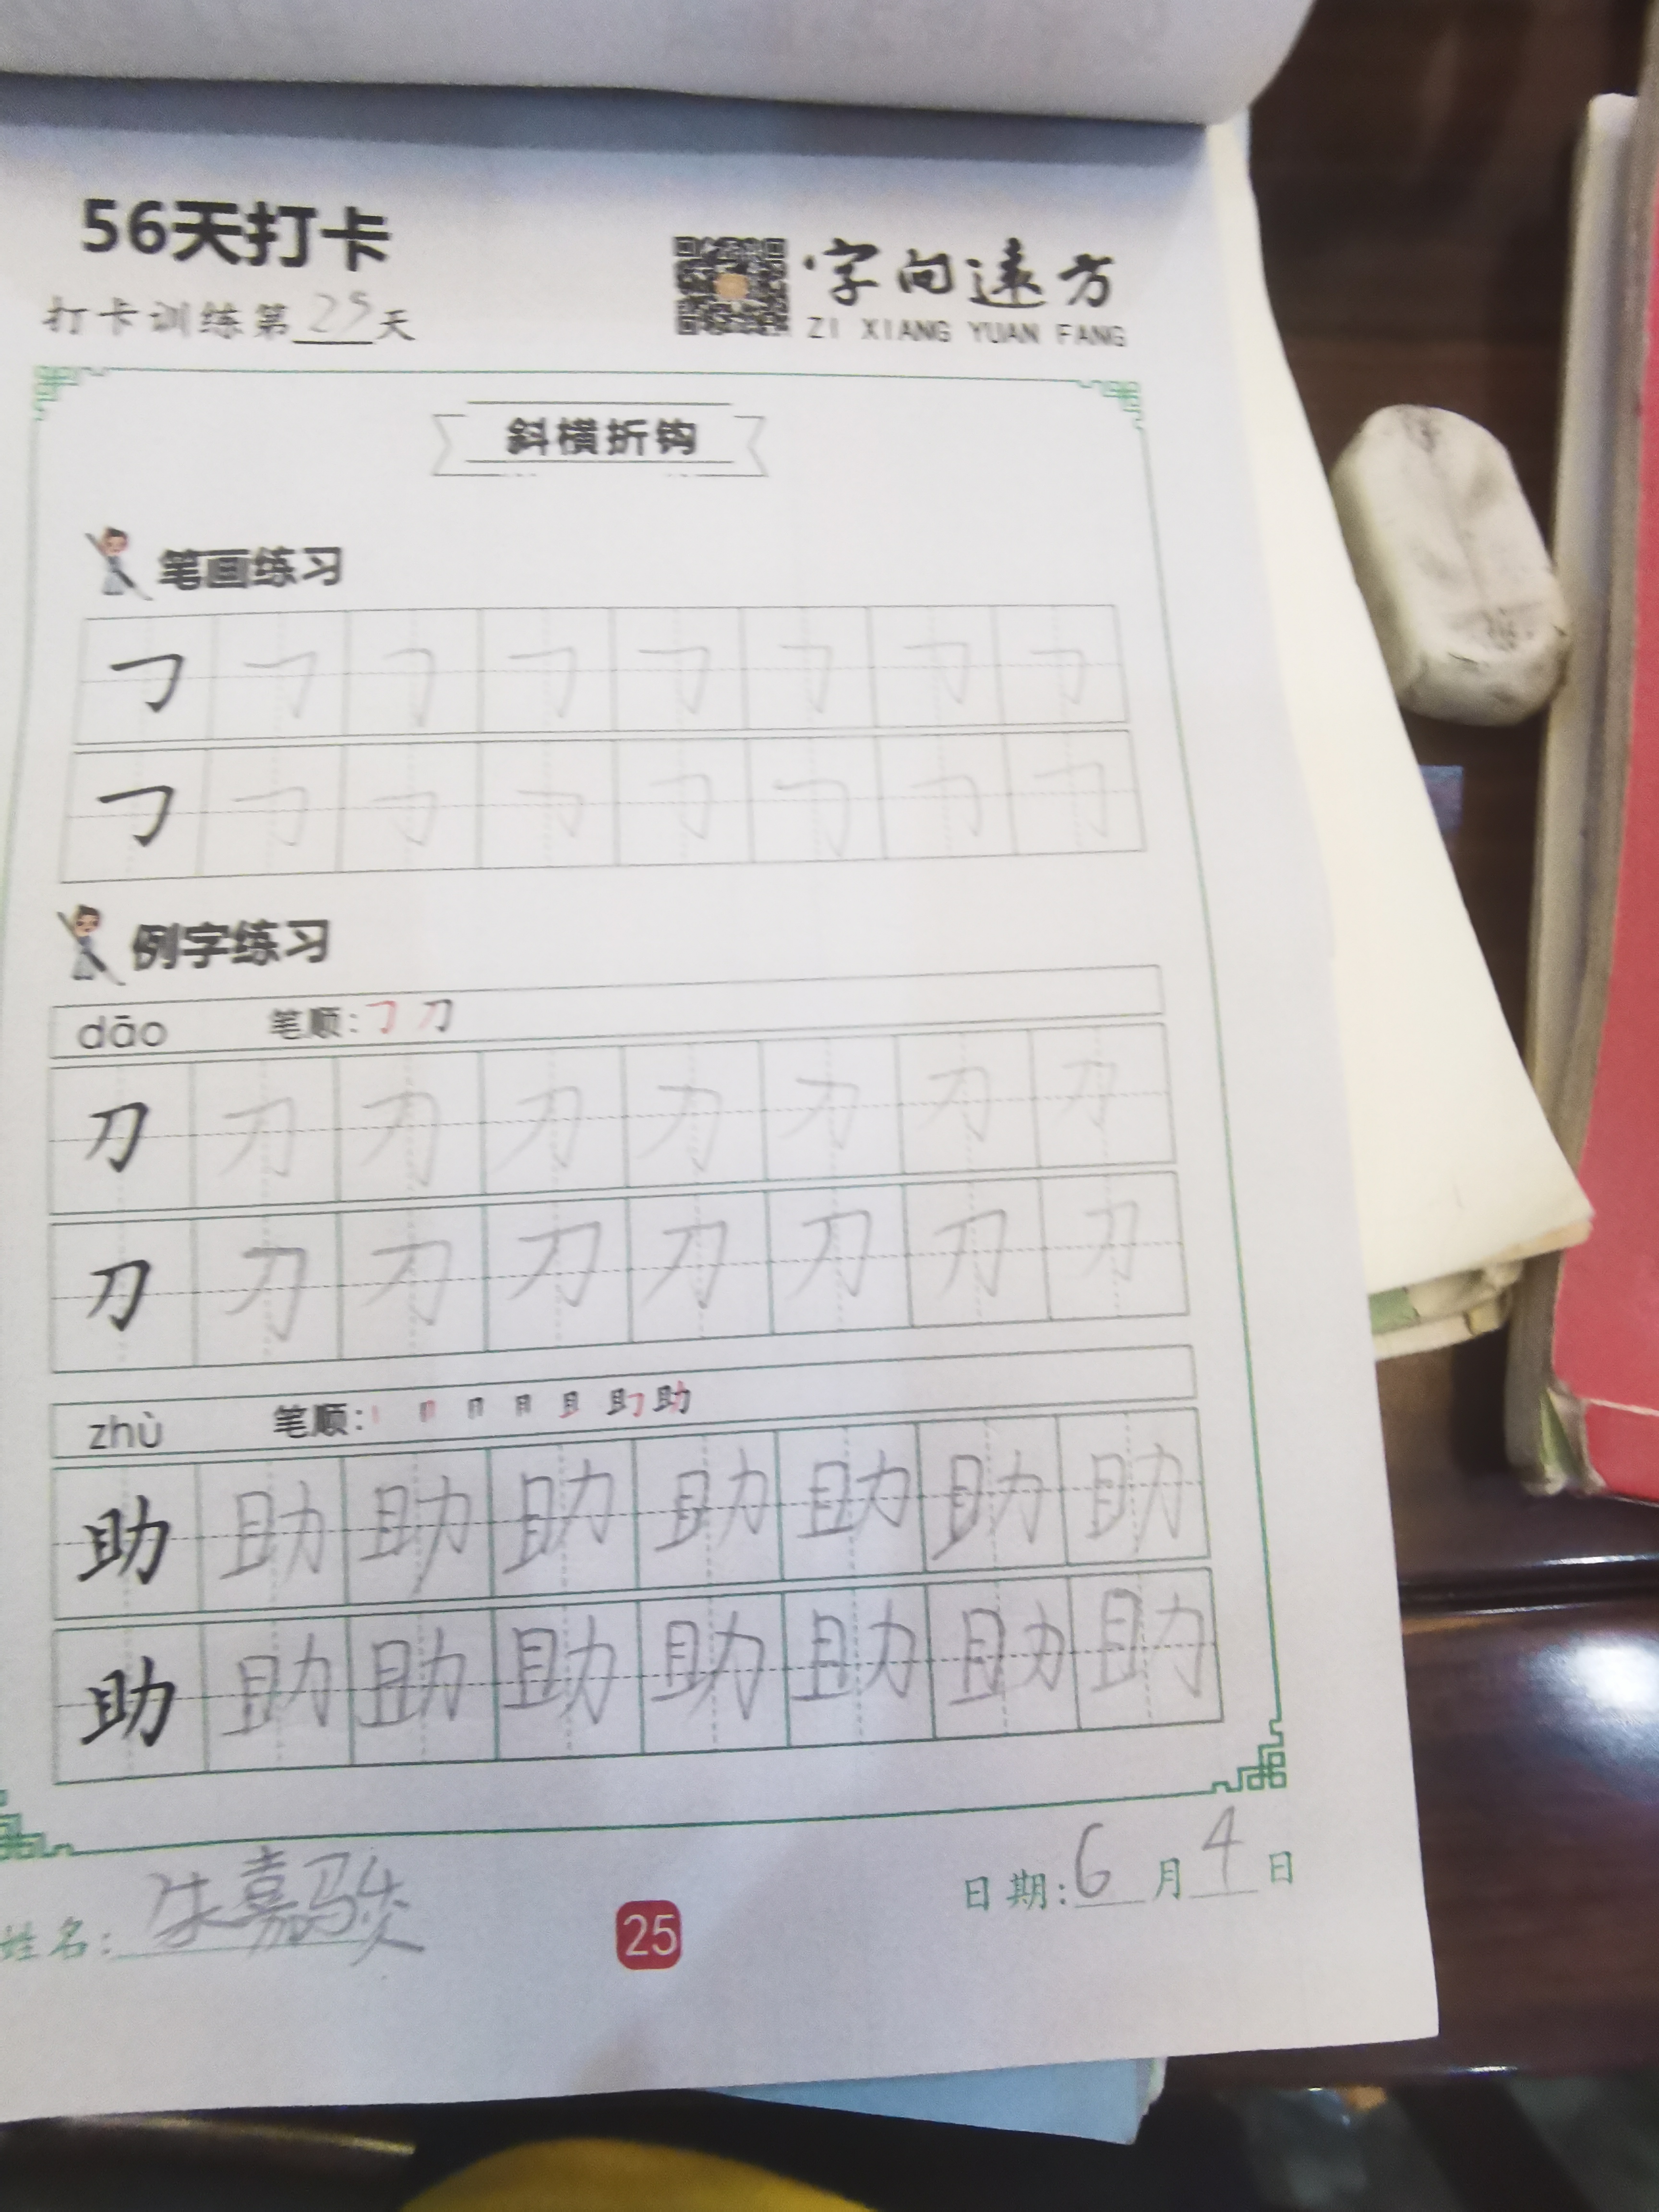 56天打卡
打卡训练第25天
字向远方
ZI XIANG YUAN FANG
斜横折钩
笔画练习
㇆ ㇆ ㇆ ㇆ ㇆ ㇆ ㇆ ㇆
㇆ ㇆ ㇆ ㇆ ㇆ ㇆ ㇆ ㇆
例字练习
dāo 笔顺:㇆ 刀
刀 刀 刀 刀 刀 刀 刀 刀
刀 刀 刀 刀 刀 刀 刀 刀
zhù 笔顺: 丨 冂 冃 月 且 助 助
助 助 助 助 助 助 助 助
助 助 助 助 助 助 助 助
姓名:朱嘉骏
25
日期:6月4日